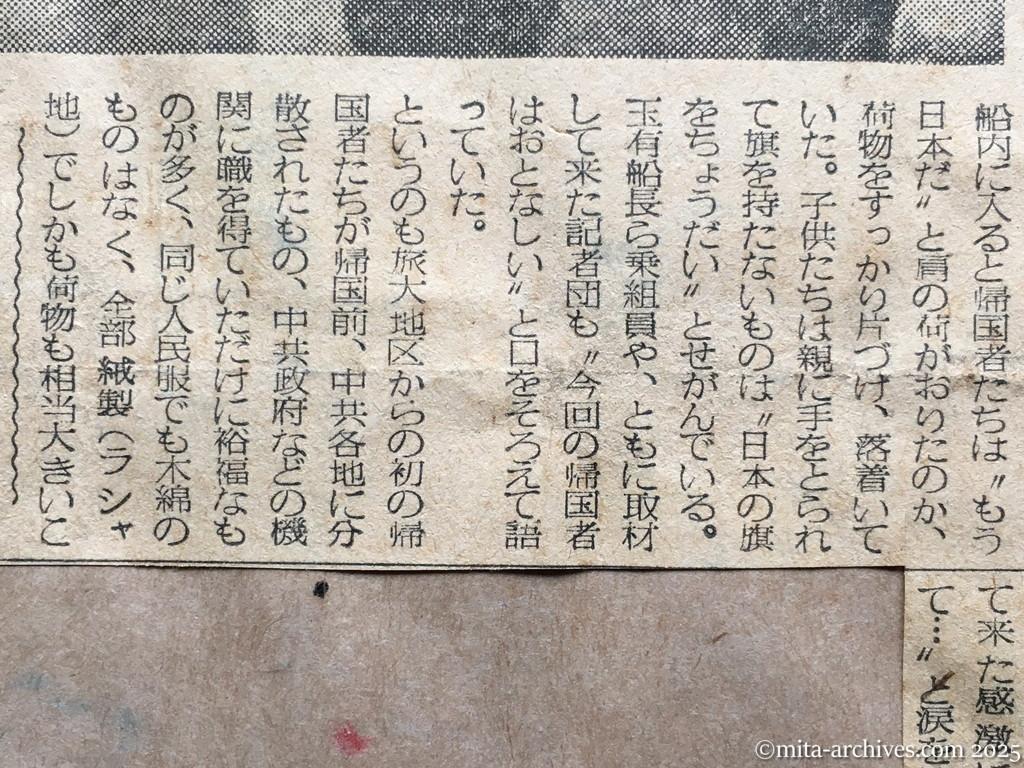 船内に入ると帰国者たちは〝もう
日本だ〟と肩の荷がおりたのか、
荷物をすっかり片づけ、落着いて
いた。子供たちは親に手をとられ
て旗を持たないものは〝日本の旗
をちょうだい〟とせがんでいる。
玉有船長ら乗組員や、ともに取材
して来た記者団も〝今回の帰国者
はおとなしい〟と口をそろえて語
っていた。
というのも旅大地区からの初の帰
国者たちが帰国前、中共各地に分
散されたもの、中共政府などの機
関に職を得ていただけに裕福なも
のが多く、同じ人民服でも木綿の
ものはなく、全部絨製（ラシャ
地）でしかも荷物も相当大きいこ
て来た感激に
て…〟と涙を
©mita-archives.com 2025